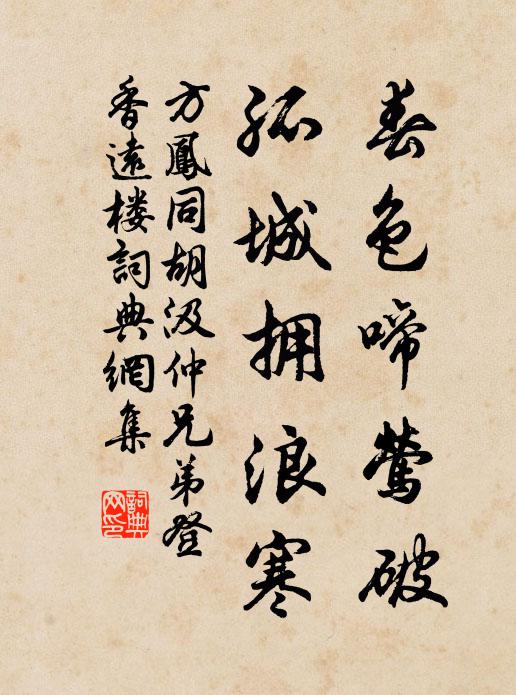 春色啼莺破
孤城拥浪寒
方鳳同胡汲仲兄弟登
香遠楼詞典網集
詞典
网印